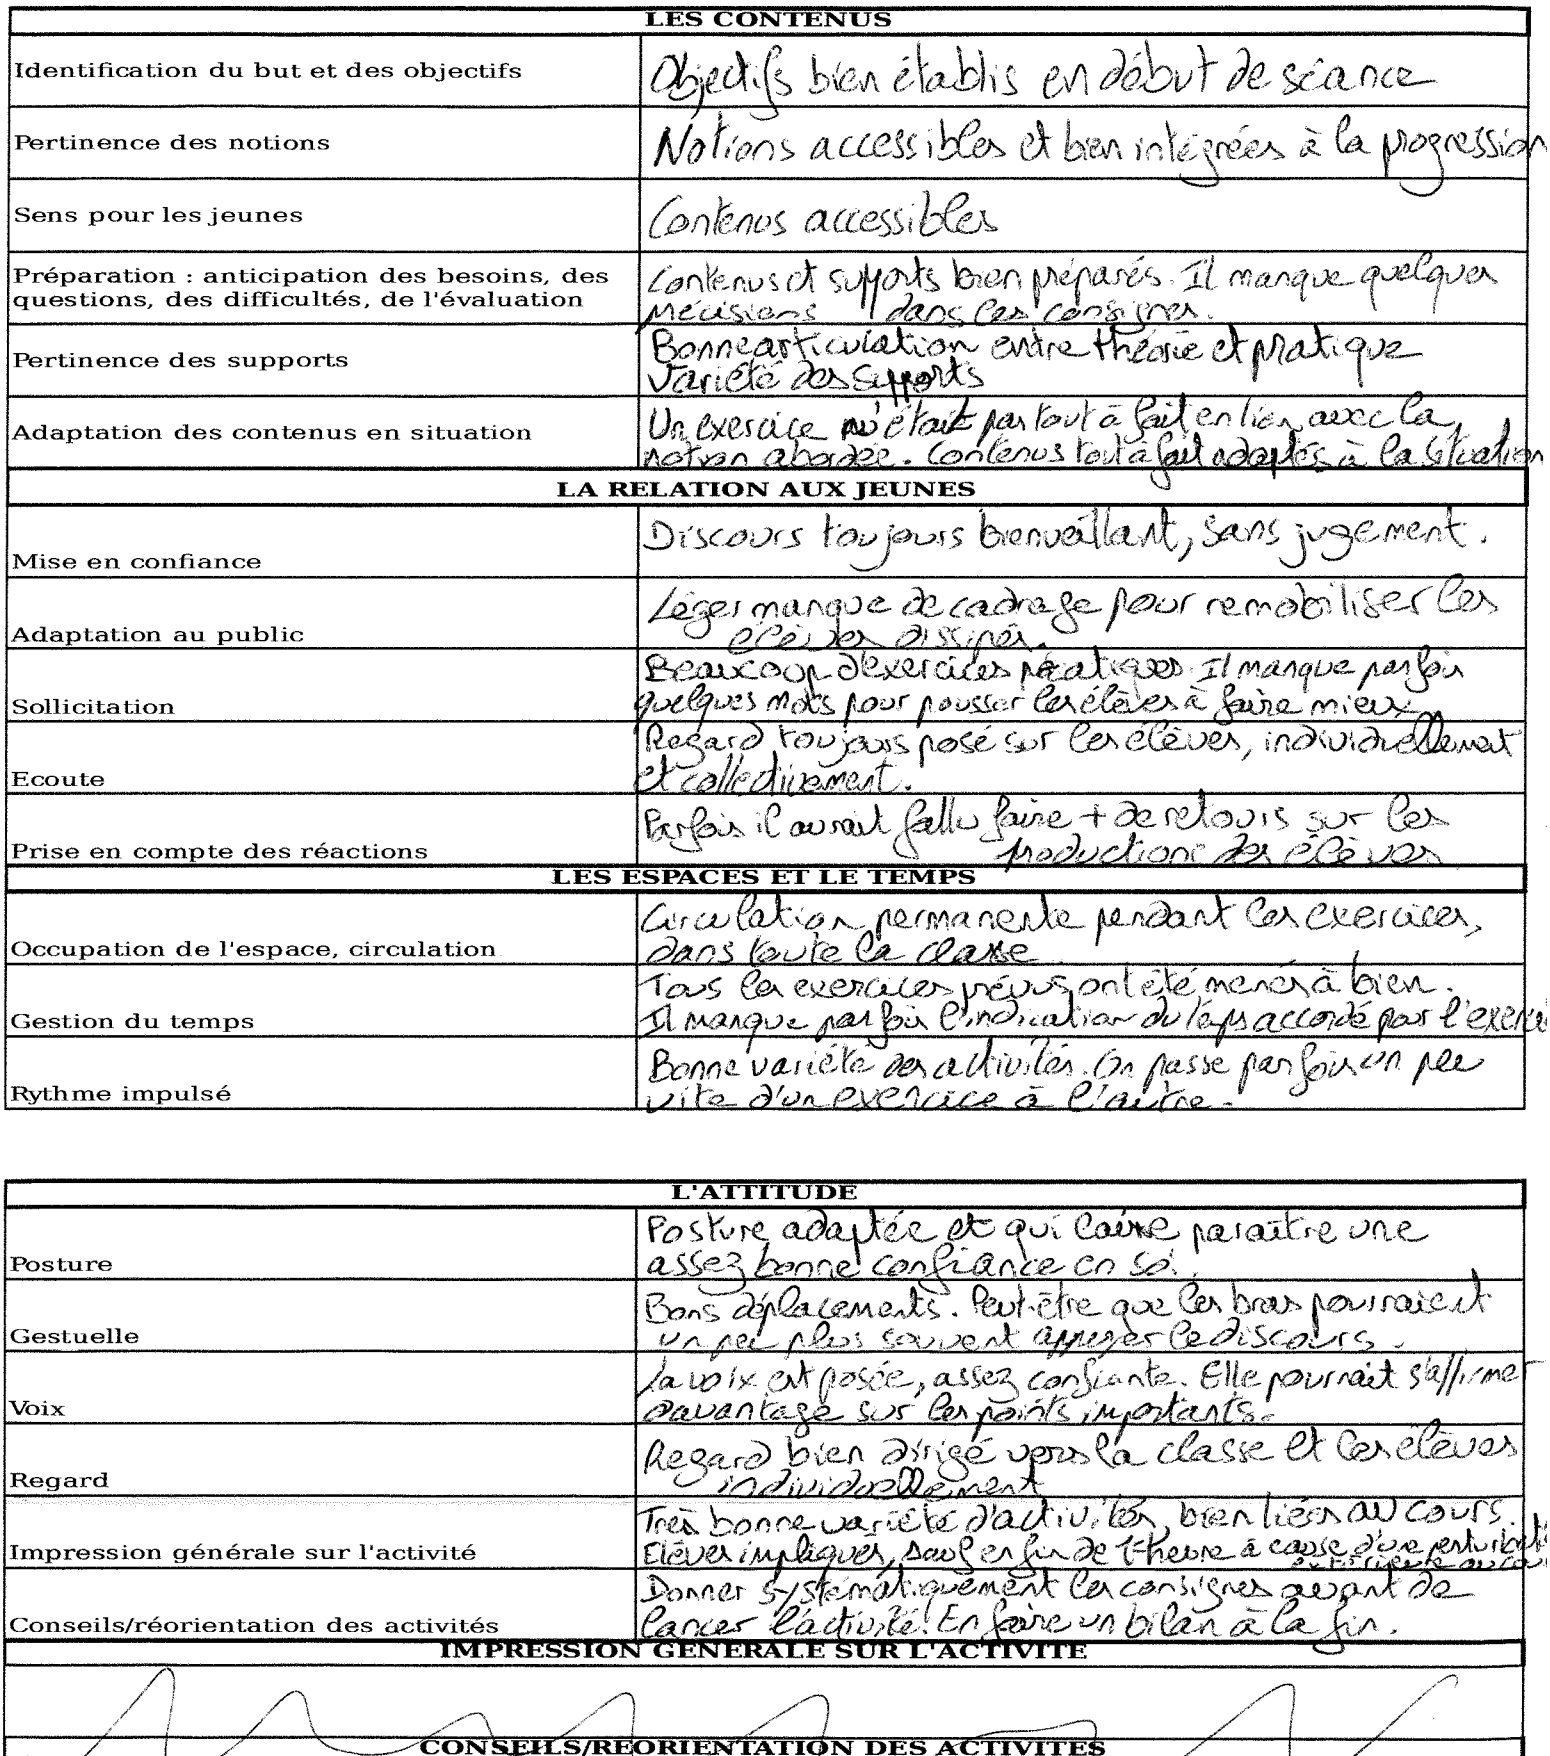 LES CONTENUS
Identification du but et des objectifs
Objectifs bien établis en début de séance
Pertinence des notions
Notions accessibles et bien intégrées à la progression
Sens pour les jeunes
Contenus accessibles
Préparation : anticipation des besoins, des
questions, des difficultés, de l'évaluation
Contenus et supports bien préparés. Il manque quelques
précisions dans les consignes.
Pertinence des supports
Bonne articulation entre théorie et pratique
Variété des supports
Adaptation des contenus en situation
Un exercice n'était pas tout à fait en lien avec la
notion abordée. Contenus tout à fait adaptés à la situation
LA RELATION AUX JEUNES
Mise en confiance
Discours toujours bienveillant, sans jugement.
Adaptation au public
Léger manque de cadrage pour remobiliser les
élèves dissipés.
Sollicitation
Beaucoup d'exercices pratiques. Il manque parfois
quelques mots pour pousser les élèves à faire mieux
Ecoute
Regard toujours posé sur les élèves, individuellement
et collectivement.
Prise en compte des réactions
Parfois il aurait fallu faire + de retours sur les
productions des élèves
LES ESPACES ET LE TEMPS
Occupation de l'espace, circulation
Circulation permanente pendant les exercices,
dans toute la classe
Gestion du temps
Tous les exercices prévus ont été menés à bien.
Il manque parfois l'indication du temps accordé pour l'exerci
Rythme impulsé
Bonne variété des activités. On passe parfois un peu
vite d'un exercice à l'autre.
L'ATTITUDE
Posture
Posture adaptée et qui laisse paraître une
assez bonne confiance en soi.
Gestuelle
Bons déplacements. Peut-être que les bras pourraient
un peu plus souvent appuyer le discours.
Voix
La voix est posée, assez confiante. Elle pourrait s'affirmer
davantage sur les points importants.
Regard
Regard bien dirigé vers la classe et les élèves
individuellement
Impression générale sur l'activité
Très bonne variété d'activités, bien liées au cours.
Elèves impliqués, sauf en fin de 1e heure à cause d'une perturbati
extérieure au cou
Conseils/réorientation des activités
Donner systématiquement les consignes avant de
lancer l'activité. En faire un bilan à la fin.
IMPRESSION GENERALE SUR L'ACTIVITE
CONSEILS/REORIENTATION DES ACTIVITES